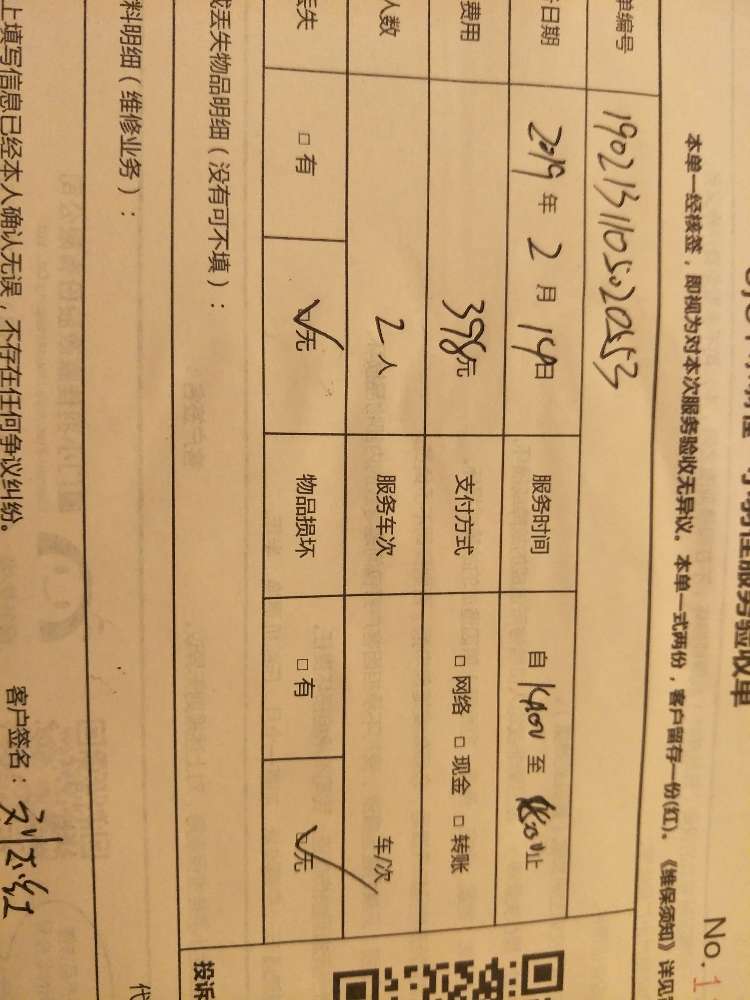 服务验收单
No.1
本单一经核签，即视为对本次服务验收无异议。本单一式两份，客户留存一份(红)。《维保须知》详见
单编号 1902131105020553
日期 2019年2月14日 服务时间 自 至 止
费用 398元 支付方式 □网络 □现金 □转账
人数 2人 服务车次 车/次
丢失 □有 ☑无 物品损坏 □有 ☑无
或丢失物品明细（没有可不填）：
投诉
料明细（维修业务）：
代
上填写信息已经本人确认无误，不存在任何争议纠纷。 客户签名：